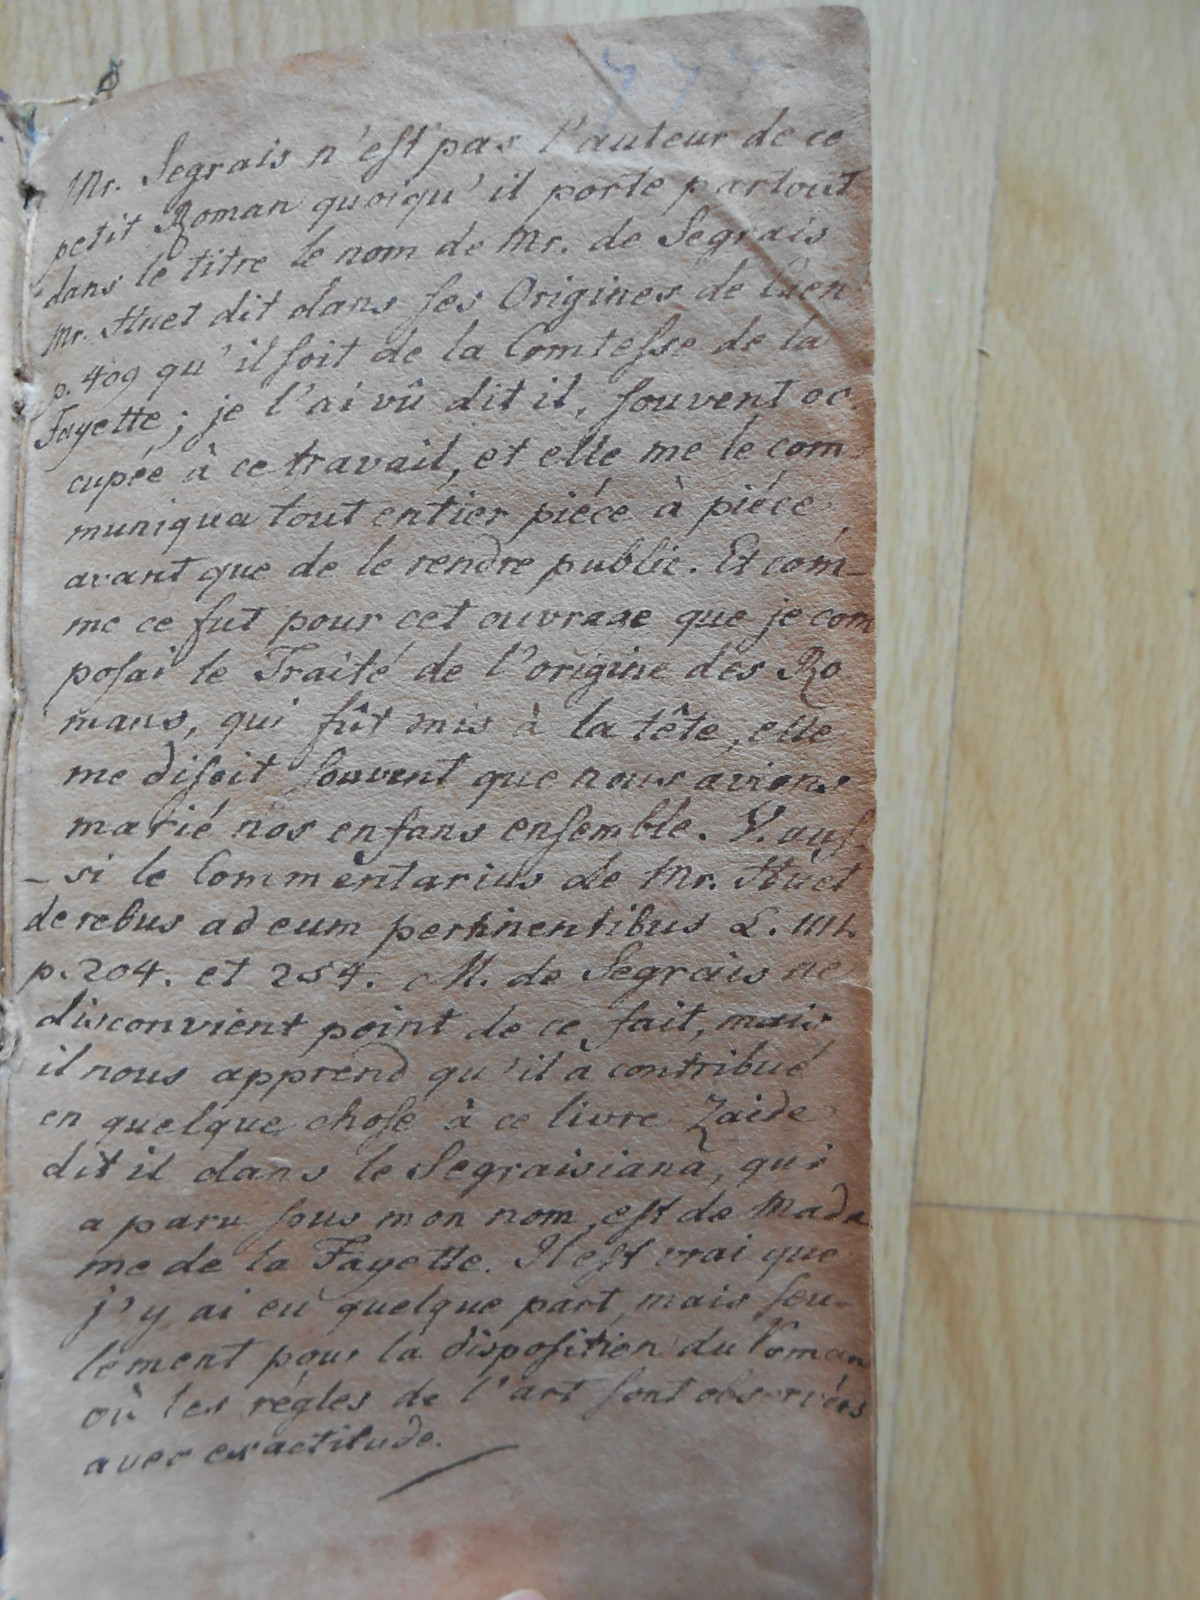 777
Mr. Segrais n'est pas l'auteur de ce
petit Roman quoiqu'il porte partout
dans le titre le nom de Mr. de Segrais
Mr. Huet dit dans ses Origines de Caen
p. 409 qu'il soit de la Comtesse de la
Fayette; je l'ai vû dit il, souvent oc
cupée à ce travail, et elle me le com
muniqua tout entier piéce à piéce,
avant que de le rendre public. Et com-
me ce fut pour cet ouvrage que je com
posai le Traité de l'origine des Ro
mans, qui fût mis à la tête, elle
me disoit souvent que nous avions
marié nos enfans ensemble. V. aus
-si le Commentarius de Mr. Huet
de rebus ad eum pertinentibus L. IIII.
p. 204. et 254. M. de Segrais ne
disconvient point de ce fait, mais
il nous apprend qu'il à contribué
en quelque chose à ce livre Zaide
dit il dans le Segraisiana, qui
a paru sous mon nom, est de Mada
me de la Fayette. Il est vrai que
j'y ai eu quelque part, mais seu-
lement pour la disposition du Roman
où les régles de l'art sont observées
avec exactitude.